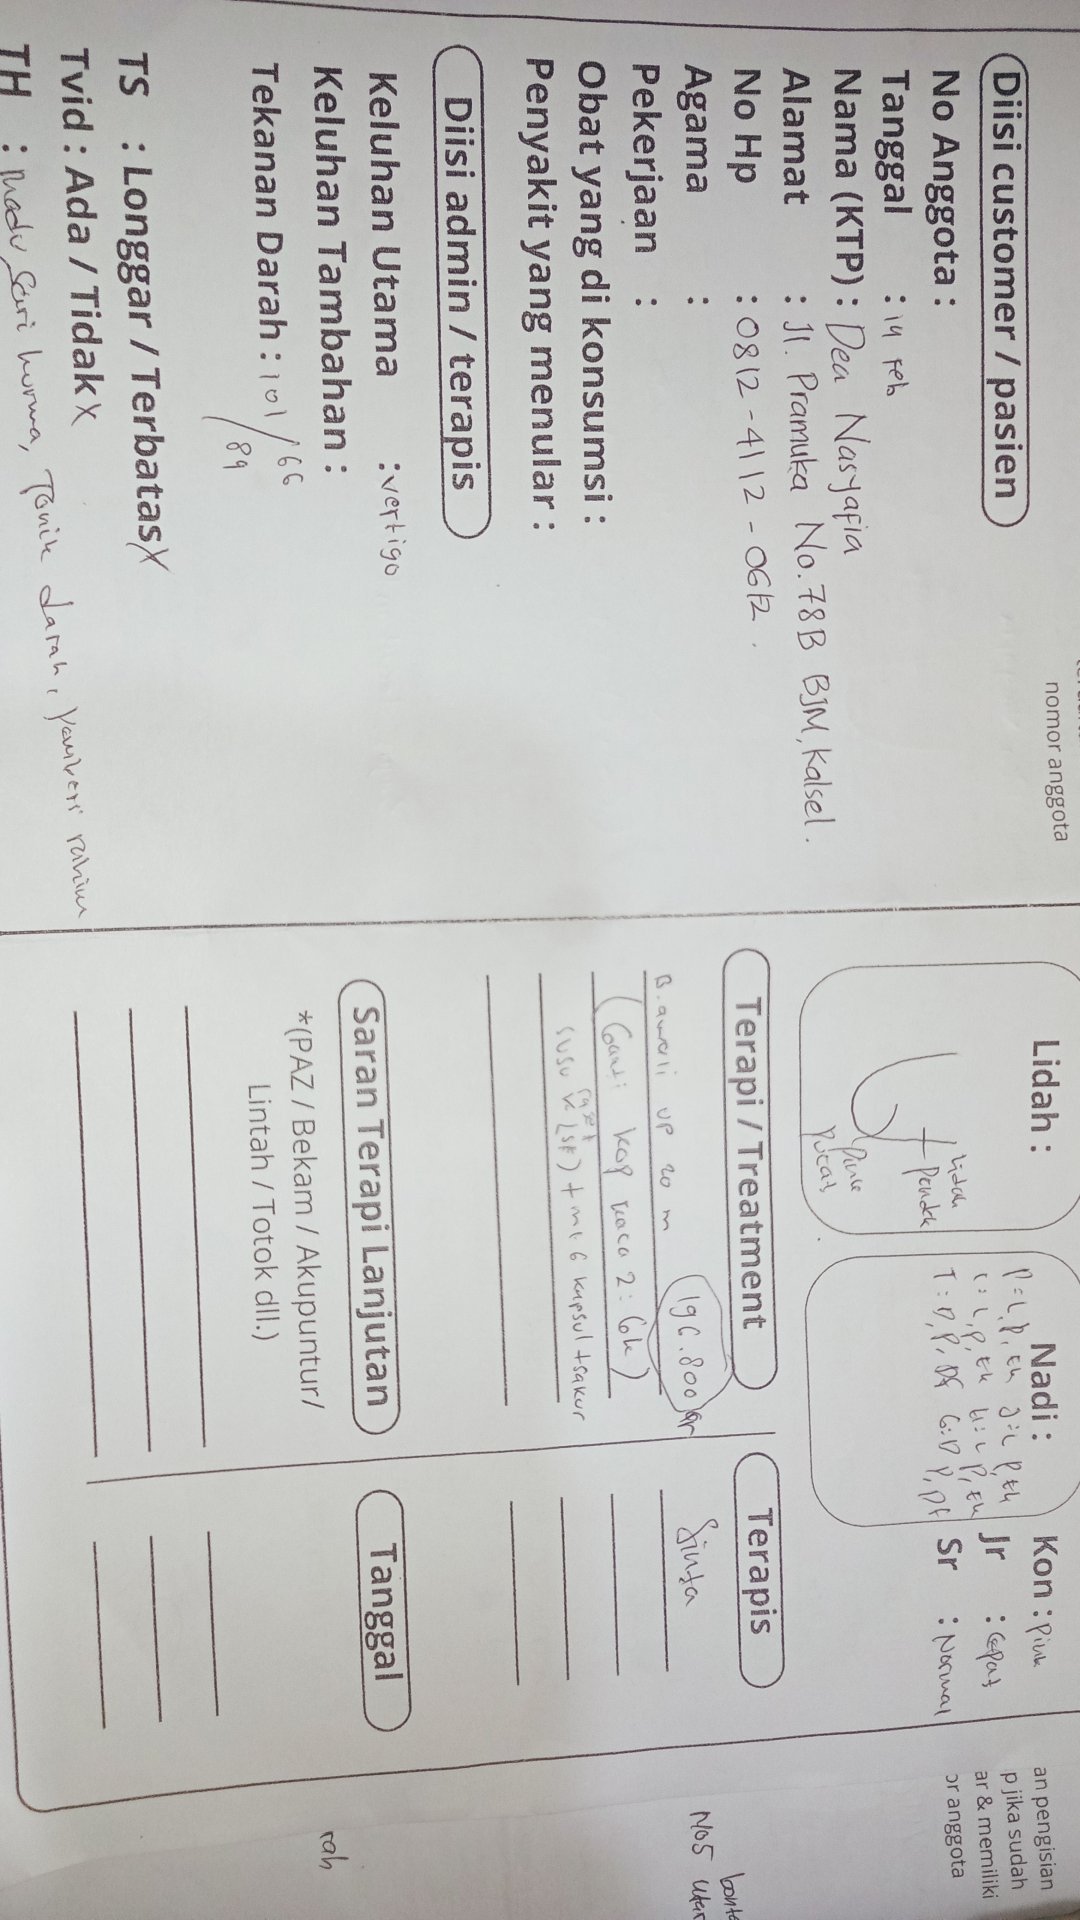 nomor anggota
Diisi customer / pasien
No Anggota :
Tanggal : 14 Feb
Nama (KTP) : Dea Nasyafia
Alamat : Jl. Pramuka No.78B BJM, Kalsel.
No Hp : 0812-4112-0612.
Agama :
Pekerjaan :
Obat yang di konsumsi :
Penyakit yang menular :
Diisi admin / terapis
Keluhan Utama : vertigo
Keluhan Tambahan :
Tekanan Darah : 101/66
/89
TS : Longgar / Terbatas X
Tvid : Ada / Tidak X
TH : Madu, Sari kurma, Tonik darah, rahim
Lidah :
Lidah
Pendek
Pink
Pucat
Nadi :
P = L, P,
L, P,
T : D, P, G : D P,
Kon : Pink
Jr : Cepat
Sr : Normal
Terapi / Treatment
196.800
B. up 20 m
(Ganti kop kaca 2 : 6k)
susu + 6 kapsul +
Terapis
Sinta
Saran Terapi Lanjutan
*(PAZ / Bekam / Akupuntur/
Lintah / Totok dll.)
Tanggal
an pengisian
p jika sudah
ar & memiliki
or anggota
rah